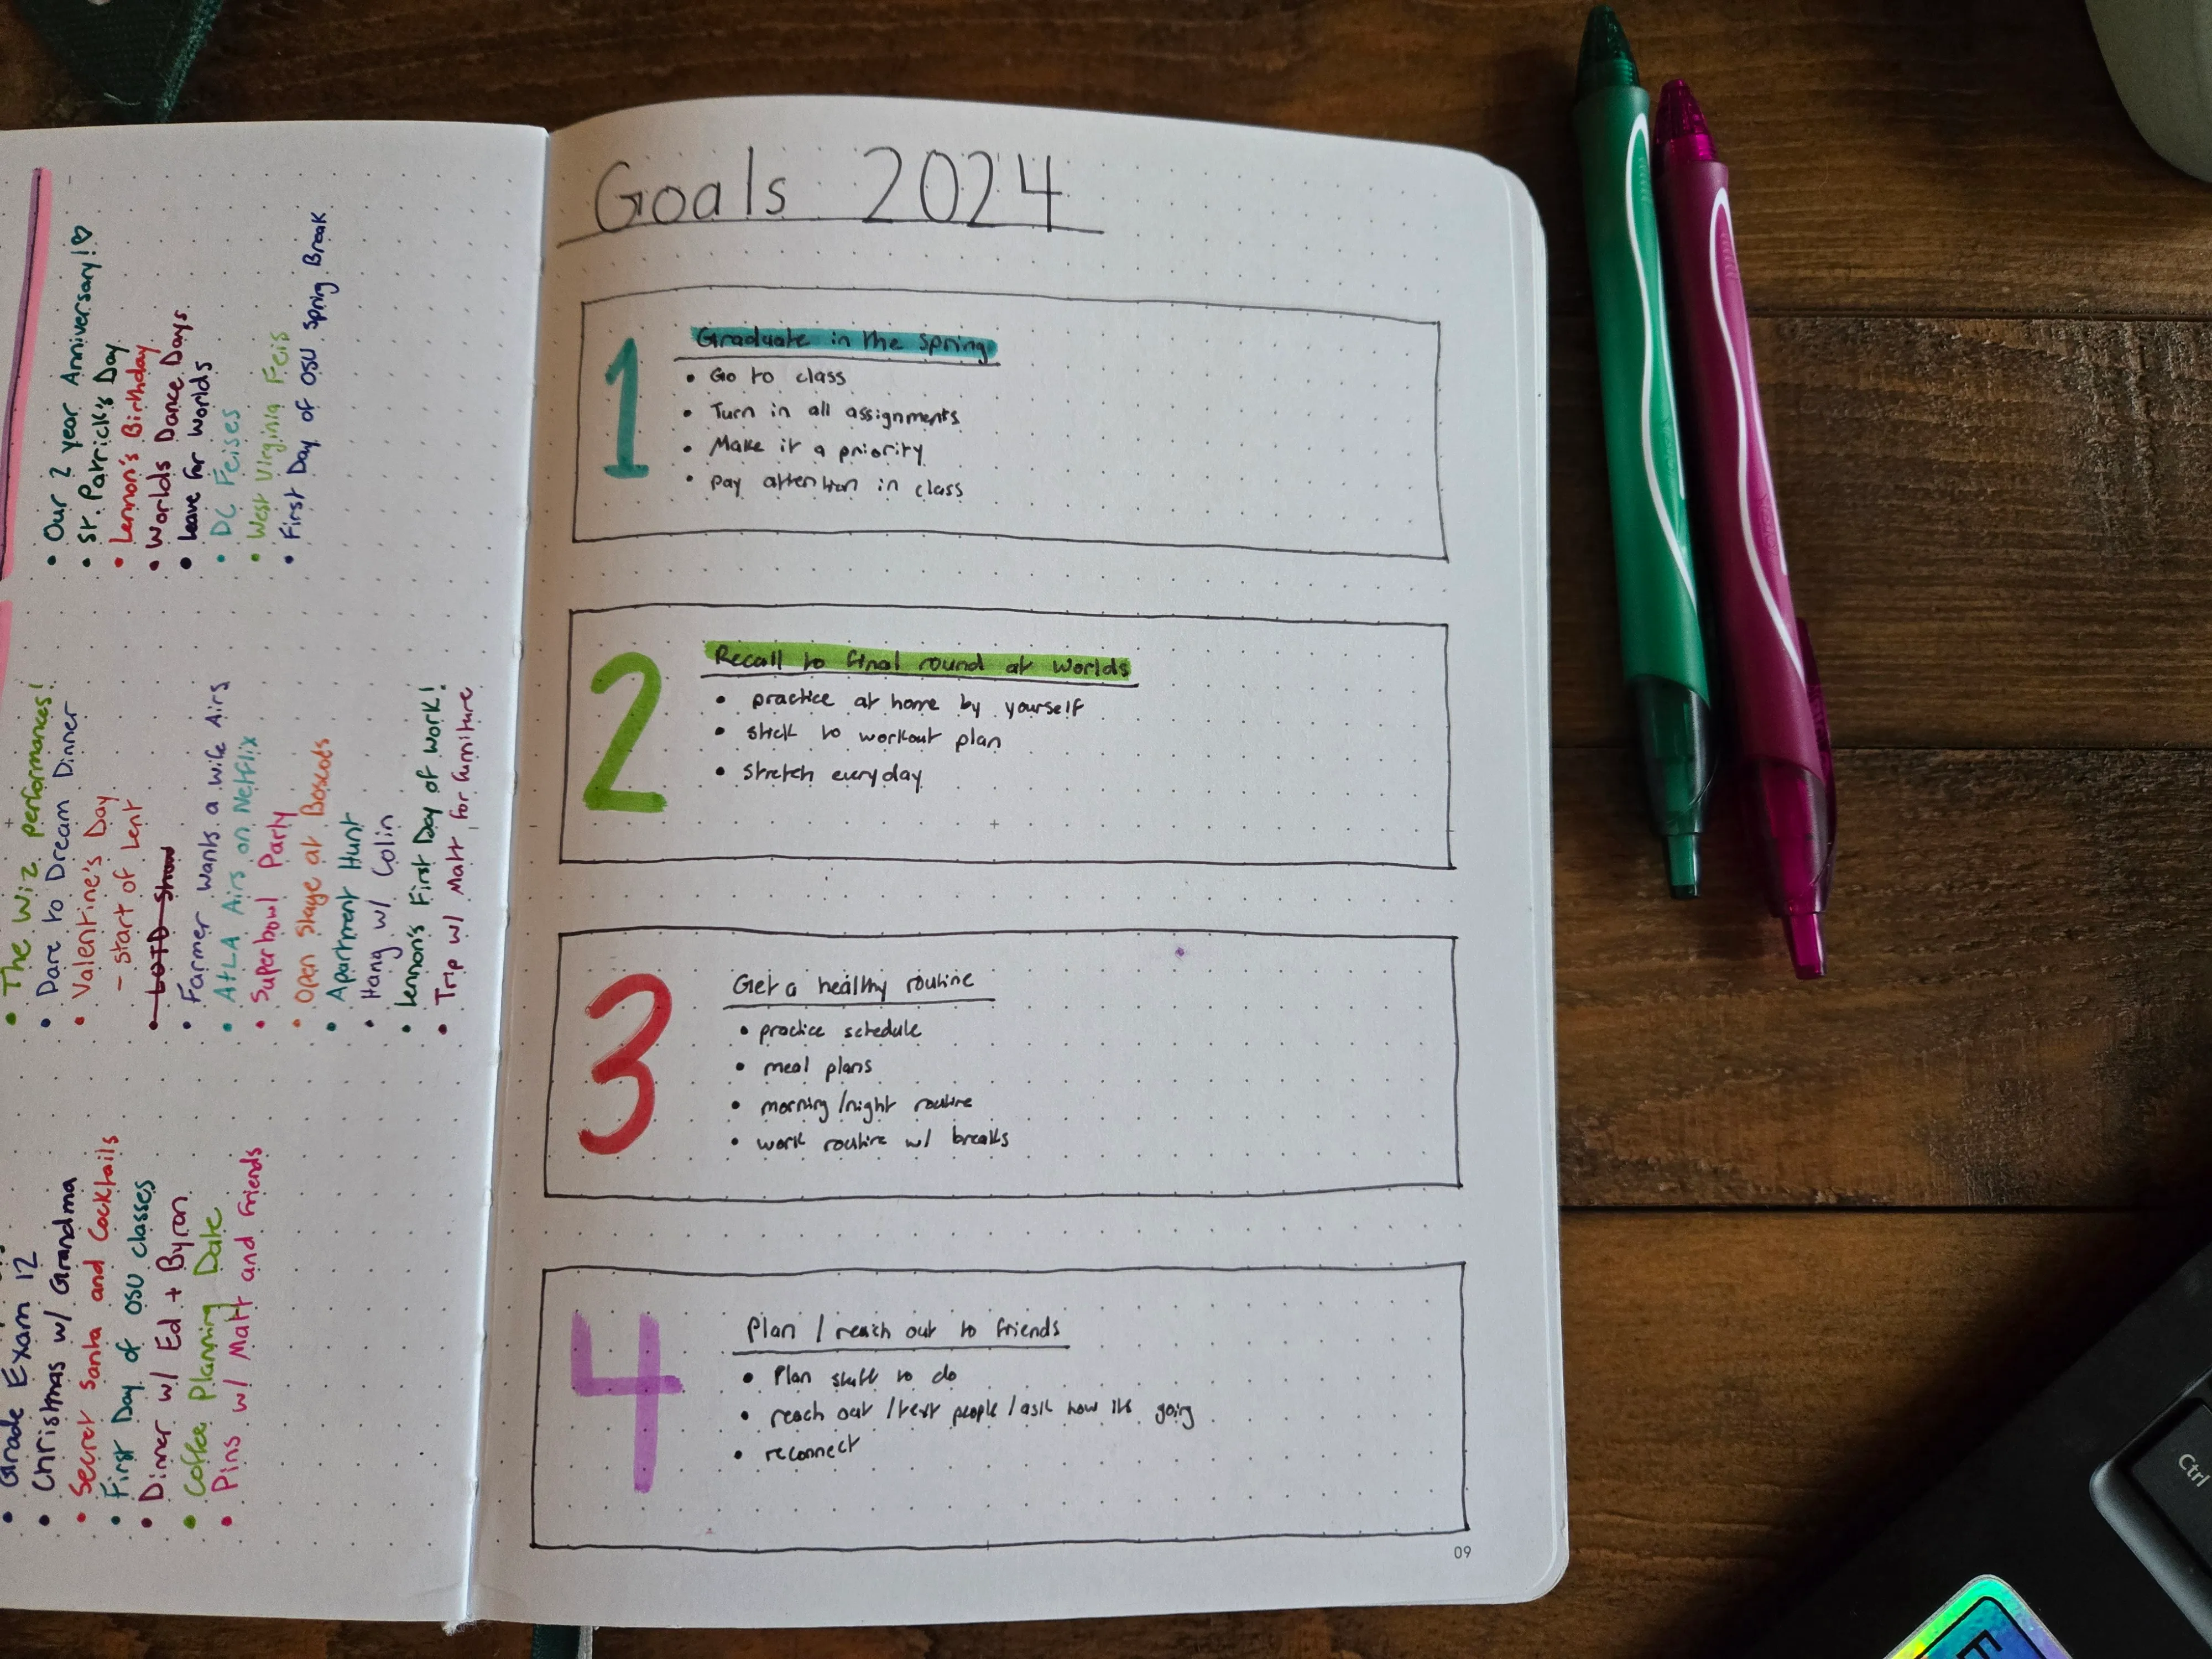 Our 2 year Anniversary!♡
St. Patrick's Day
Lennon's Birthday
Worlds Dance Days
Leave for Worlds
DC Feises
West Virginia Feis
First Day of OSU Spring Break
The Wiz performances!
Dare to Dream Dinner
Valentine's Day
- Start of Lent
LOTD Show
Farmer wants a wife Airs
AtLA Airs on Netflix
Superbowl Party
Open Stage at Boscoes
Apartment Hunt
Hang w/ Colin
Lennon's First Day of Work!
Trip w/ Matt for furniture
Grade Exam 12
Christmas w/ Grandma
Secret Santa and Cocktails
First Day of OSU Classes
Dinner w/ Ed + Byron
Coffee Planning Date
Pins w/ Matt and Friends
Goals 2024
1
Graduate in the Spring
• Go to class
• Turn in all assignments
• Make it a priority
• pay attention in class
2
Recall to final round at Worlds
• practice at home by yourself
• stick to workout plan
• stretch everyday
3
Get a healthy routine
• practice schedule
• meal plans
• morning/night routine
• work routine w/ breaks
4
Plan / reach out to friends
• Plan stuff to do
• reach out /text people/ask how its going
• reconnect
09
Ctrl